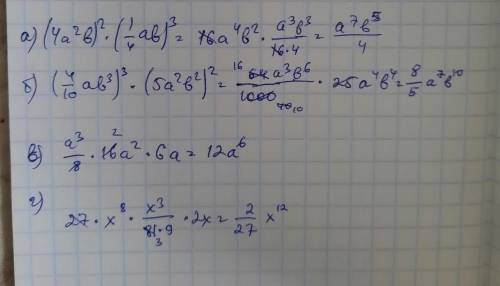 а) (4a²b)² · (1/4 ab)³ = 16a⁴b² · a³b³/16·4 = a⁷b⁵/4
б) (4/10 ab³)³ · (5a²b²)² = 16 64a³b⁶/1000 40 10 · 25a⁴b⁴ = 8/5 a⁷b¹⁰
в) a³/8 · 16 2 a² · 6a = 12a⁶
г) 27 · x⁸ · x³/81·9 3 · 2x = 2/27 x¹²